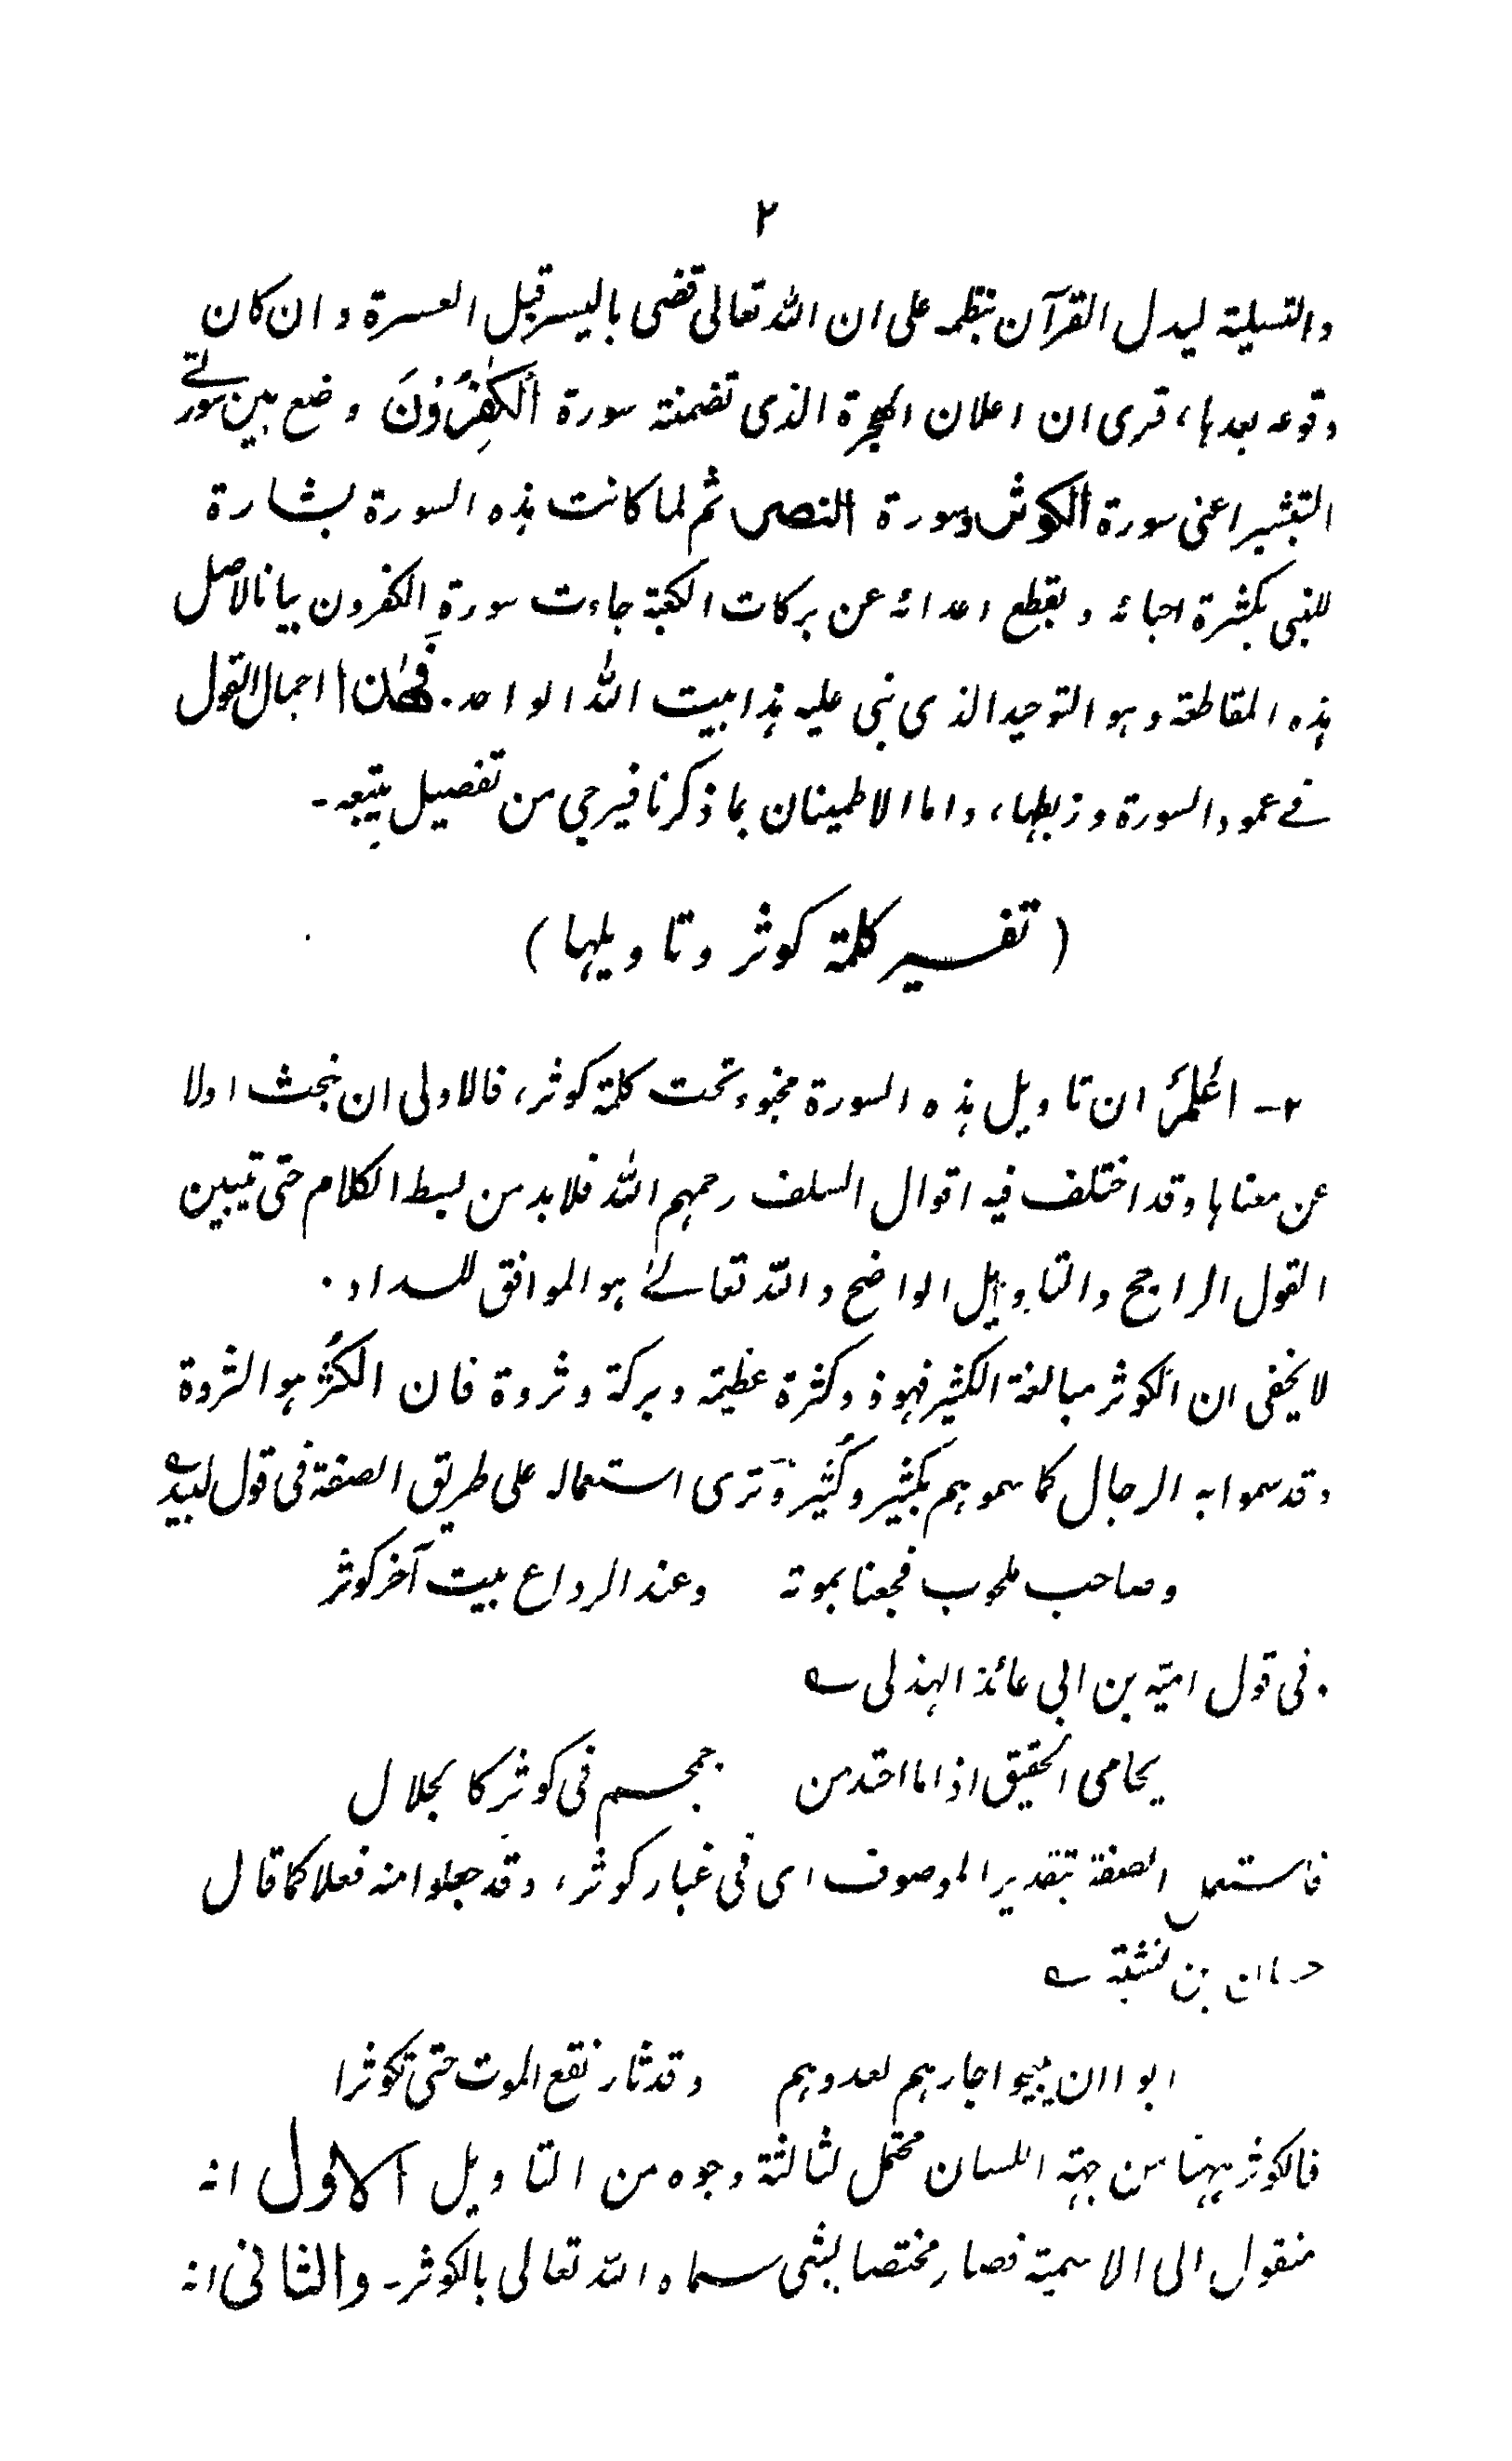 ٢
والتسلية ليدل القرآن بنظمه على ان الله تعالى قضى باليسر قبل العسرة وان كان
وقوعه بعدها، فترى ان اعلان الهجرة الذى تضمنته سورة الْكٰفِرُوْنَ وضع بين سورتے
التبشير اعنى سورة الكوثر وسورة النصر ثم لما كانت هذه السورة بشارة
للنبى بكثرة احبائه وبقطع اعدائه عن بركات الكعبة جاءت سورة الكفرون بيانا لاصل
هذه المقاطعة وهو التوحيد الذى بنى عليه هذا بيت الله الواحد. فهٰذا اجمال القول
فے عمود السورة وربطها، واما الاطمينان بما ذكرنا فيرجى من تفصيل يتبعه۔
(تفسير كلمة كوثر وتاويلها)
٢۔ اعْلَمْ ان تاويل هذه السورة مخبوء تحت كلمة كوثر، فالاولى ان نبحث اولا
عن معناها وقد اختلف فيه اقوال السلف رحمهم الله فلا بد من بسط الكلام حتى تبيين
القول الراجح والتاويل الواضح والله تعالےٰ هو الموافق للسداد.
لا يخفى ان الكوثر مبالغة الكثير فهو ذو كثرة عظيمة وبركة وثروة فان الكُثْر هو الثروة
وقد سموا به الرجال كما سموهم بكثير وكُثَيِّر وترى استعماله على طريق الصفة فى قول لبيد؎
وصاحب ملحوب فجعنا بموته وعند الرداع بيت آخر كوثر
وفى قول اميّه بن ابى عائذ الهذلى؎
يحامى الحقيق اذا ما احتدمن جمحم فى كوثر كالجلال
فاستعمل الصفة بتقدير الموصوف اى فى غبار كوثر، وقد جعلوا منه فعلا كما قال
حسان بن نشبة؎
ابوا ان يبيحوا جارهم لعدوهم وقد ثار نقع الموت حتى تكوثرا
فالكوثر ههنا من جهة اللسان محتمل لثالثة وجوه من التاويل الاول انه
منقول الى الاسمية فصار مختصا بشى سماه الله تعالى بالكوثر۔ والثانى انه